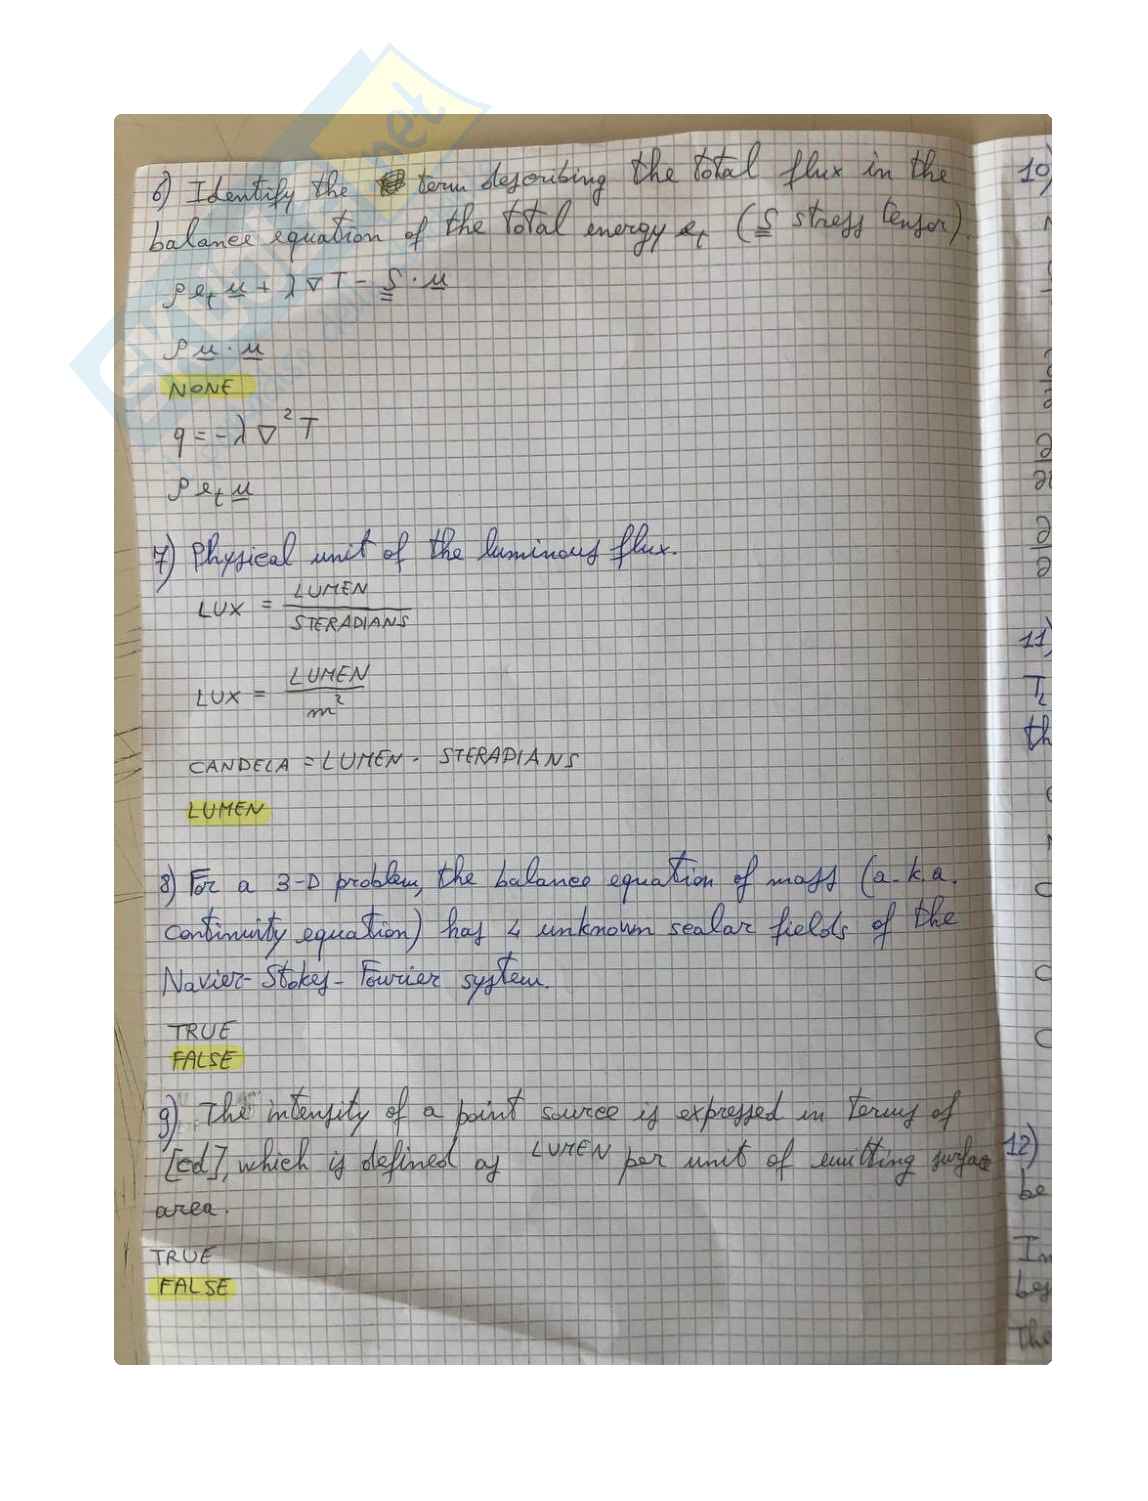 6) Identify the term describing the total flux in the
balance equation of the total energy eₜ (S stress tensor).
ρ eₜ u + λ ∇ T - S · u
ρ u · u
NONE
q = -λ ∇² T
ρ eₜ u
7) Physical unit of the luminous flux.
LUX = LUMEN / STERADIANS
LUX = LUMEN / m²
CANDELA = LUMEN · STERADIANS
LUMEN
8) For a 3-D problem, the balance equation of mass (a.k.a.
continuity equation) has 4 unknown scalar fields of the
Navier-Stokes-Fourier system.
TRUE
FALSE
9) The intensity of a point source is expressed in terms of
[cd], which is defined as LUMEN per unit of emitting surface
area.
TRUE
FALSE
10)
11)
th
12)
be
The